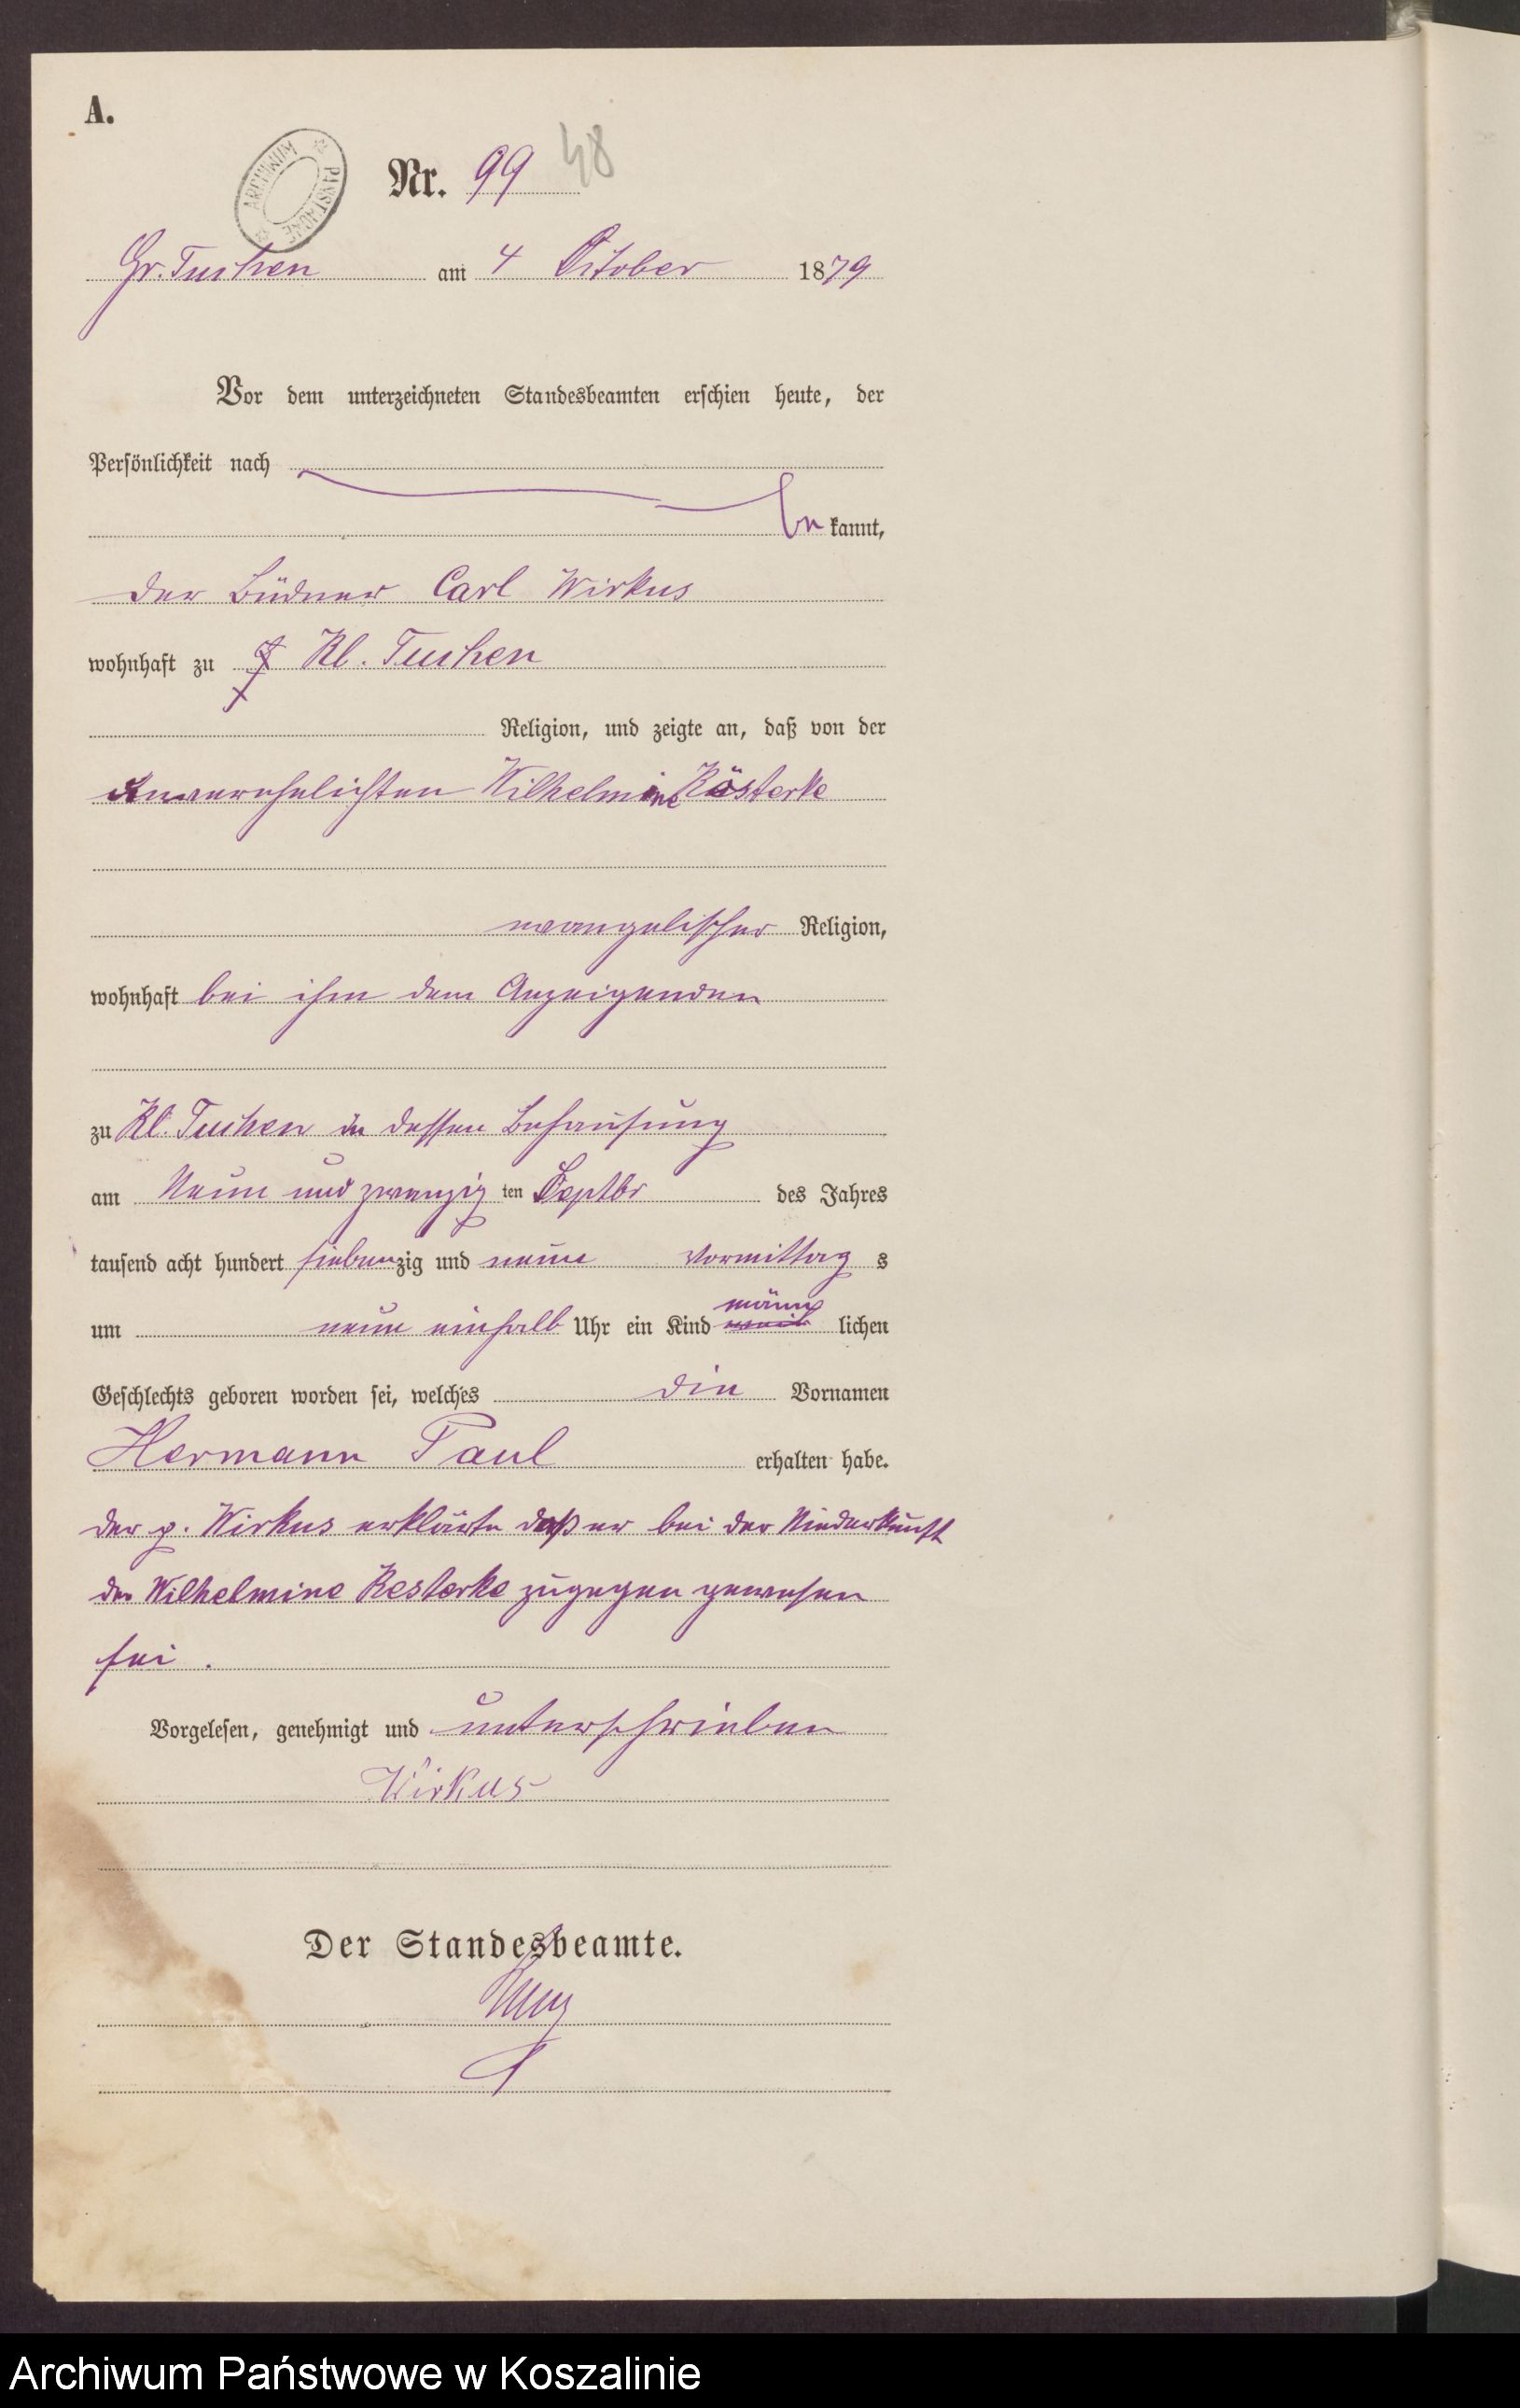 A.
ARCHIWUM PAŃSTWOWE
Nr. 99 48
Gr. Tuchen am 4 October 1879
Vor dem unterzeichneten Standesbeamten erschien heute, der
Persönlichkeit nach
be kannt,
der Büdner Carl Wirkus
wohnhaft zu Kl. Tuchen
Religion, und zeigte an, daß von der
unverehelichten Wilhelmine Kösterke
evangelischer Religion,
wohnhaft bei ihm dem Anzeigenden
zu Kl. Tuchen in dessen Behausung
am Neun und zwanzig ten Septbr des Jahres
tausend acht hundert siebenzig und neun Vormittag s
um neun einhalb Uhr ein Kind männ lichen
Geschlechts geboren worden sei, welches die Vornamen
Hermann Paul erhalten habe.
Der p. Wirkus erklärte daß er bei der Niederkunft
der Wilhelmine Kesterke zugegen gewesen
sei.
Vorgelesen, genehmigt und unterschrieben
Wirkus
Der Standesbeamte.
Archiwum Państwowe w Koszalinie